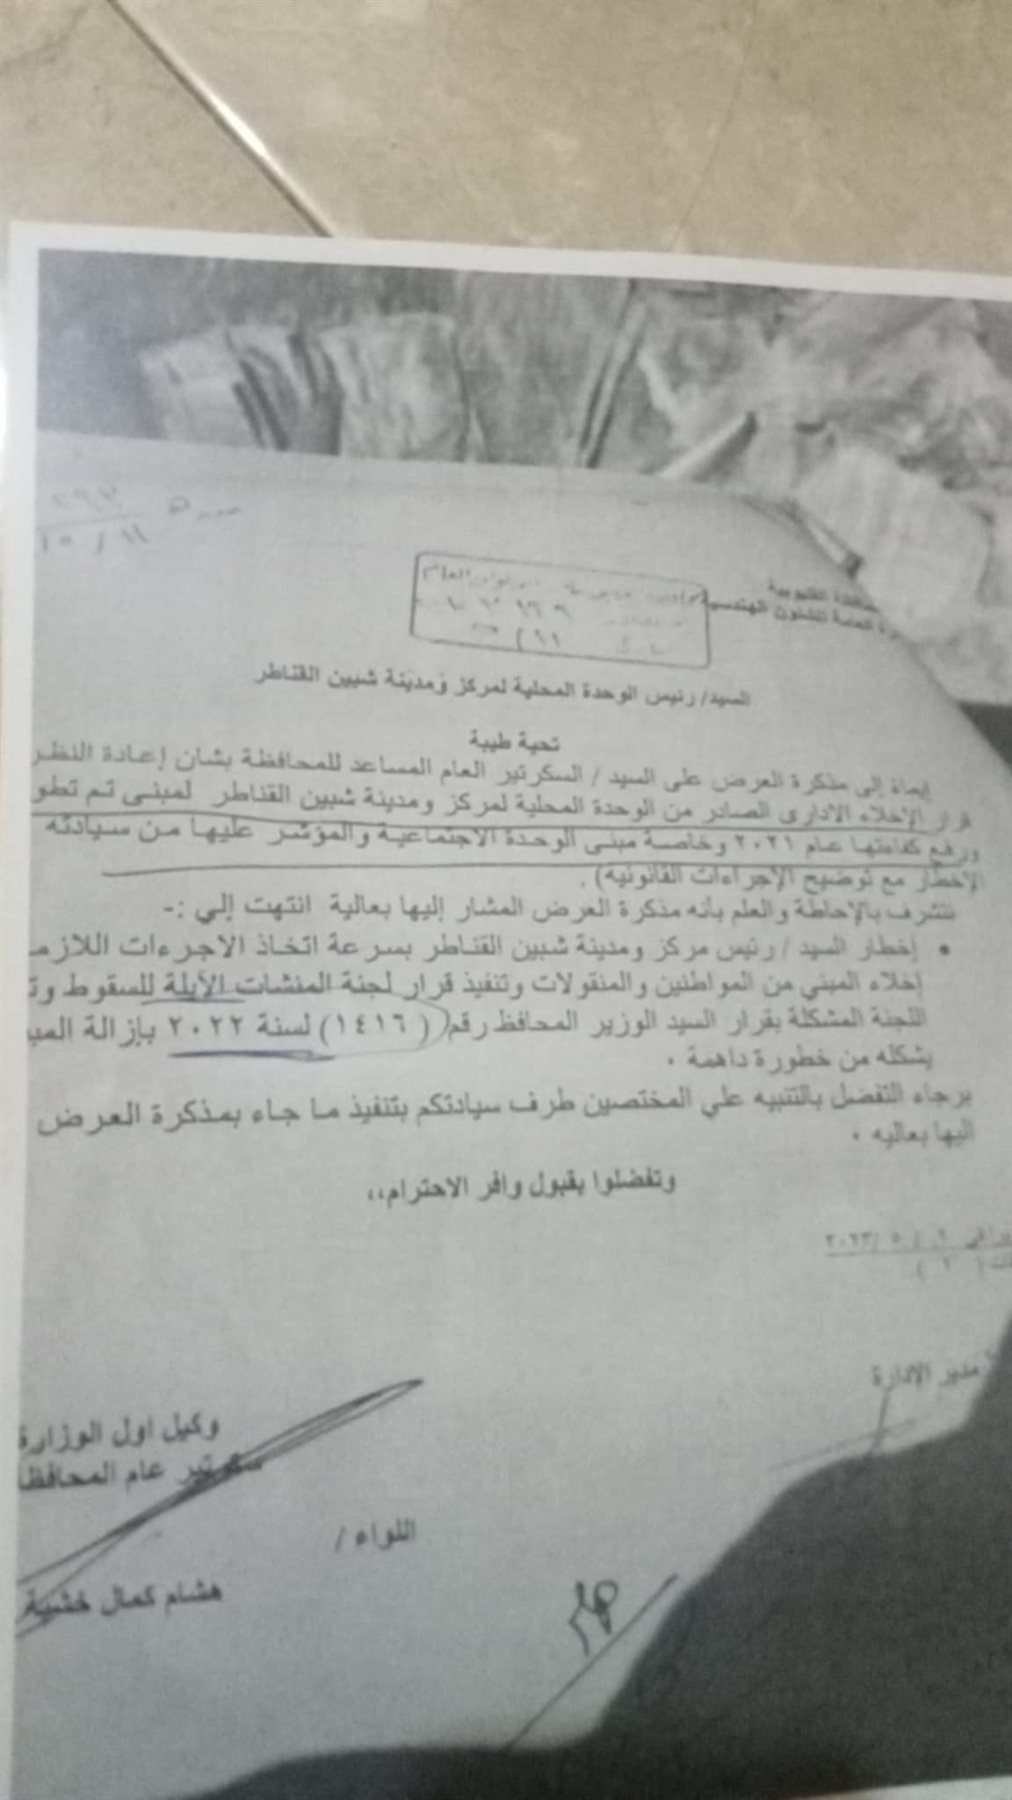 محافظة القليوبية
العامة للشئون الهندسية
السيد/ رئيس الوحدة المحلية لمركز ومدينة شبين القناطر
تحية طيبة
إيماء إلى مذكرة العرض على السيد / السكرتير العام المساعد للمحافظة بشان إعادة النظر
قرار الإخلاء الادارى الصادر من الوحدة المحلية لمركز ومدينة شبين القناطر لمبنى تم تطو
ورفع كفاءتها عام ٢٠٢١ وخاصة مبنى الوحدة الاجتماعية والمؤشر عليها من سيادته
الإخطار مع توضيح الإجراءات القانونية) .
نتشرف بالإحاطة والعلم بأنه مذكرة العرض المشار إليها بعالية انتهت إلي :-
• إخطار السيد / رئيس مركز ومدينة شبين القناطر بسرعة اتخاذ الاجرءات اللازمـ
إخلاء المبني من المواطنين والمنقولات وتنفيذ قرار لجنة المنشات الآيلة للسقوط وتـ
اللجنة المشكلة بقرار السيد الوزير المحافظ رقم ( ١٤١٦ ) لسنة ٢٠٢٢ بإزالة المبـ
يشكله من خطورة داهمة .
برجاء التفضل بالتنبيه علي المختصين طرف سيادتكم بتنفيذ ما جاء بمذكرة العرض
اليها بعاليه .
وتفضلوا بقبول وافر الاحترام،،
في ٢ / ٥ / ٢٠٢٣
مدير الإدارة
وكيل اول الوزارة
سكرتير عام المحافظة
اللواء /
هشام كمال خشبة